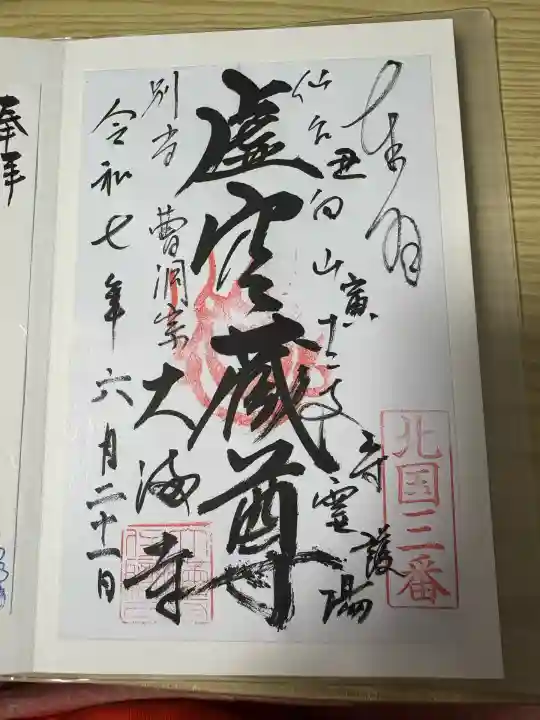 奉拝
北国三番
仙台
丑
向山
寅
十二支
守護
霊場
虚空蔵尊
別当
曹洞宗
大満寺
令和七年六月二十一日
奉拝